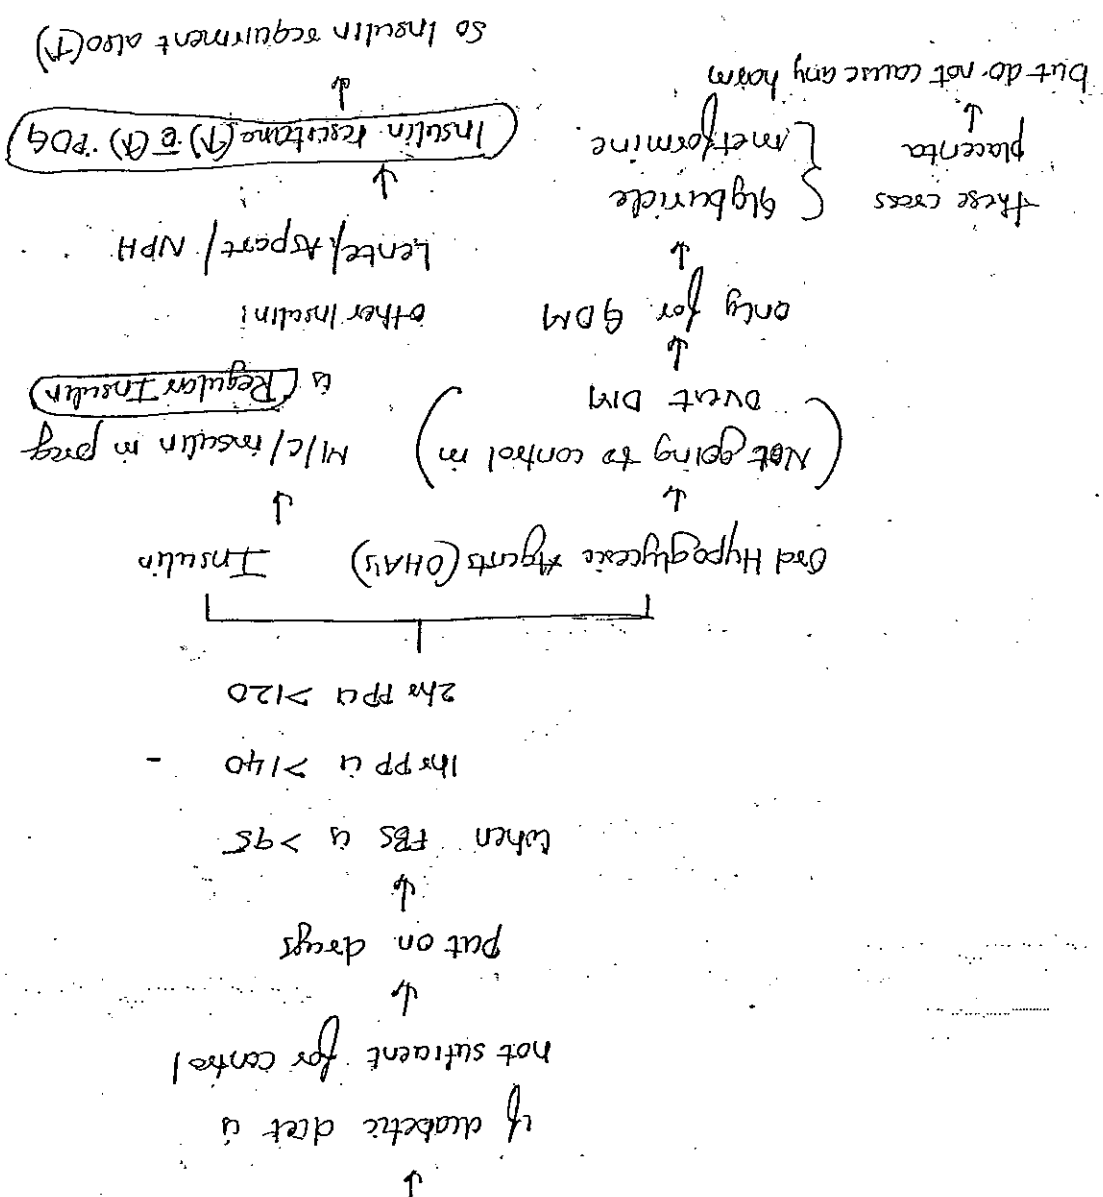 ↓
If diabetic diet is
not sufficient for control
↓
Put on drugs
↓
When FBS is >95
1hr PP is >140
2hr PP is >120
Oral Hypoglycemic Agents (OHA's)
↓
(Not going to control in
overt DM)
↓
only for GDM
↓
these cross placenta
↓
but do not cause any harm
{ Glyburide
metformine
Insulin
↓
M/C/insulin in preg
is (Regular Insulin)
other Insulin:
Lente/Aspart/NPH
↓
Insulin resistance (↑) c̄ (↑) POG
↓
So Insulin requirment also (↑)